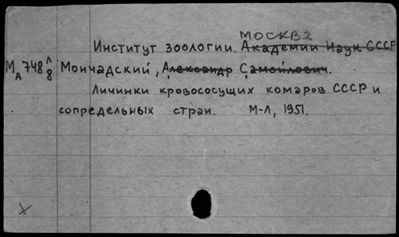 МОСКВА
Институт зоологии. Академии Наук СССР
МА748 Л/8 Мончадский, Александр Самойлович.
Личинки кровососущих комаров СССР и
сопредельных стран. М-Л, 1951.